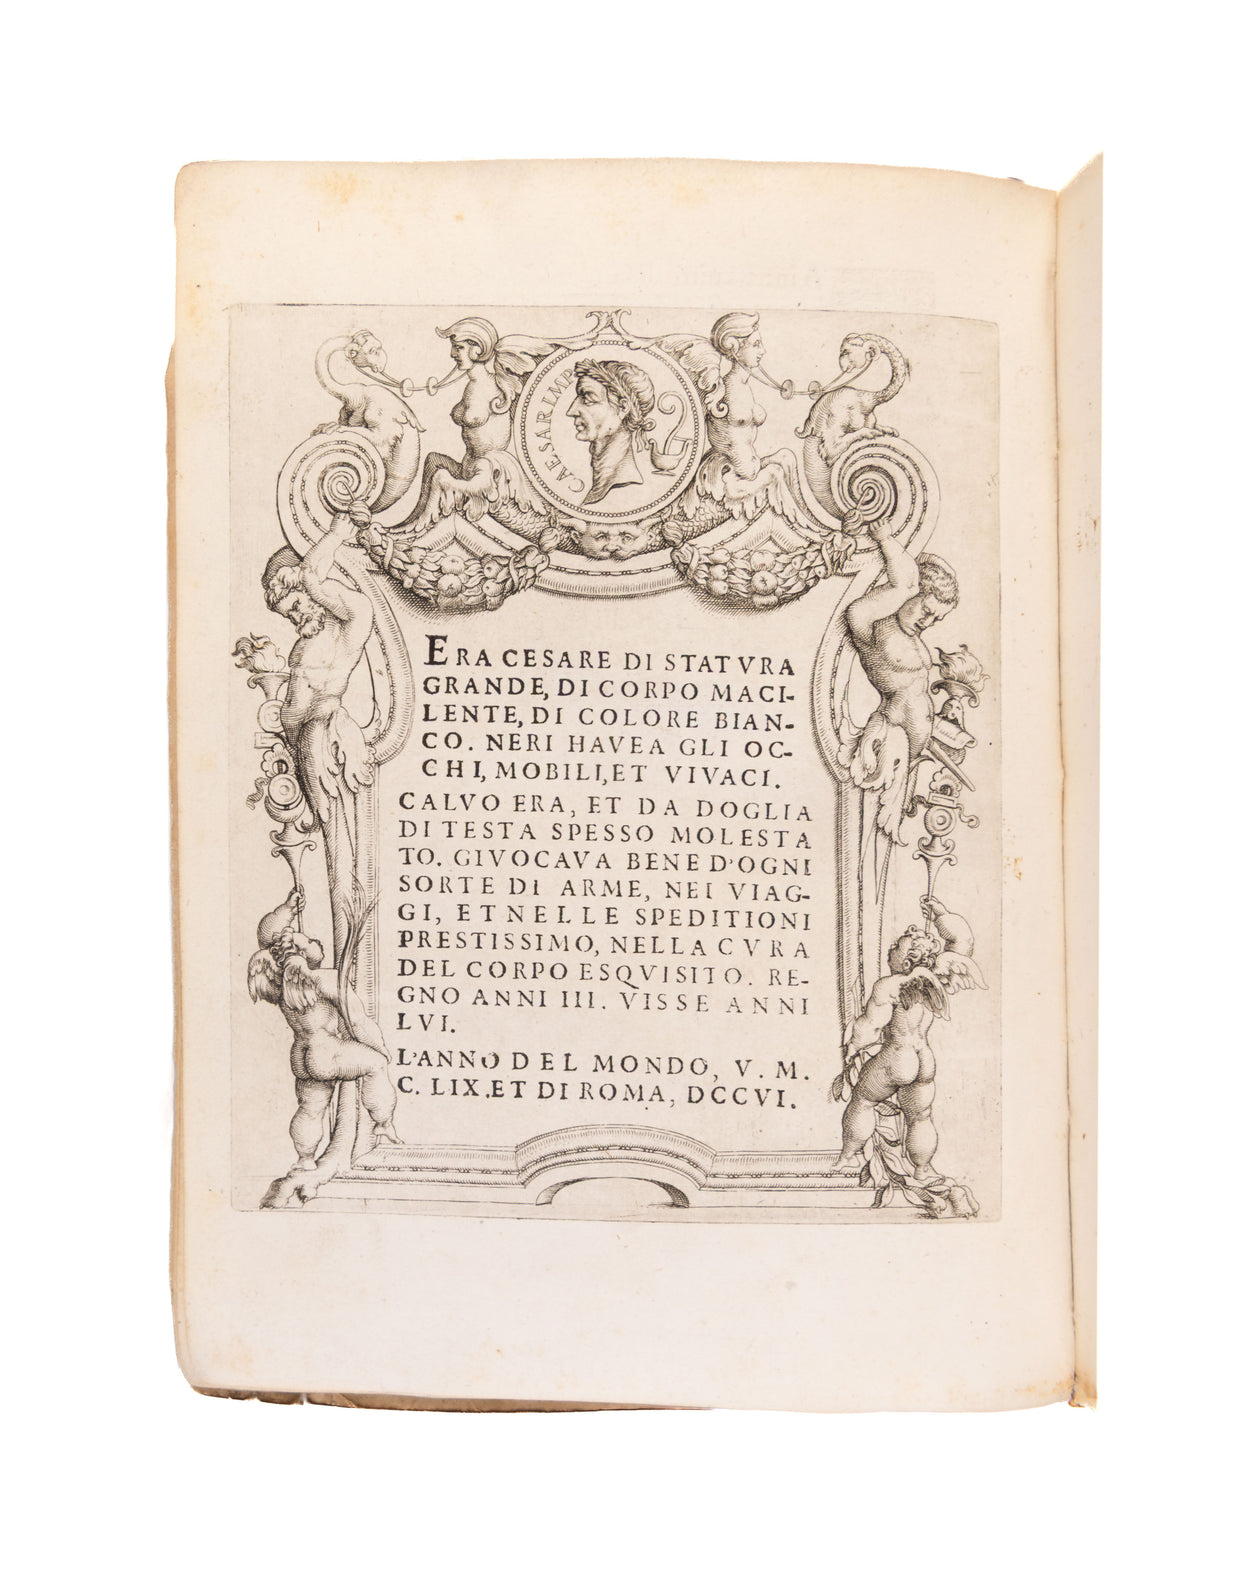 CAESAR IMP
ERA CESARE DI STATVRA
GRANDE, DI CORPO MACI-
LENTE, DI COLORE BIAN-
CO. NERI HAVEA GLI OC-
CHI, MOBILI, ET VIVACI.
CALVO ERA, ET DA DOGLIA
DI TESTA SPESSO MOLESTA
TO. GIVOCAVA BENE D'OGNI
SORTE DI ARME, NEI VIAG-
GI, ET NELLE SPEDITIONI
PRESTISSIMO, NELLA CVRA
DEL CORPO ESQVISITO. RE-
GNO ANNI III. VISSE ANNI
LVI.
L'ANNO DEL MONDO, V. M.
C. LIX. ET DI ROMA, DCCVI.